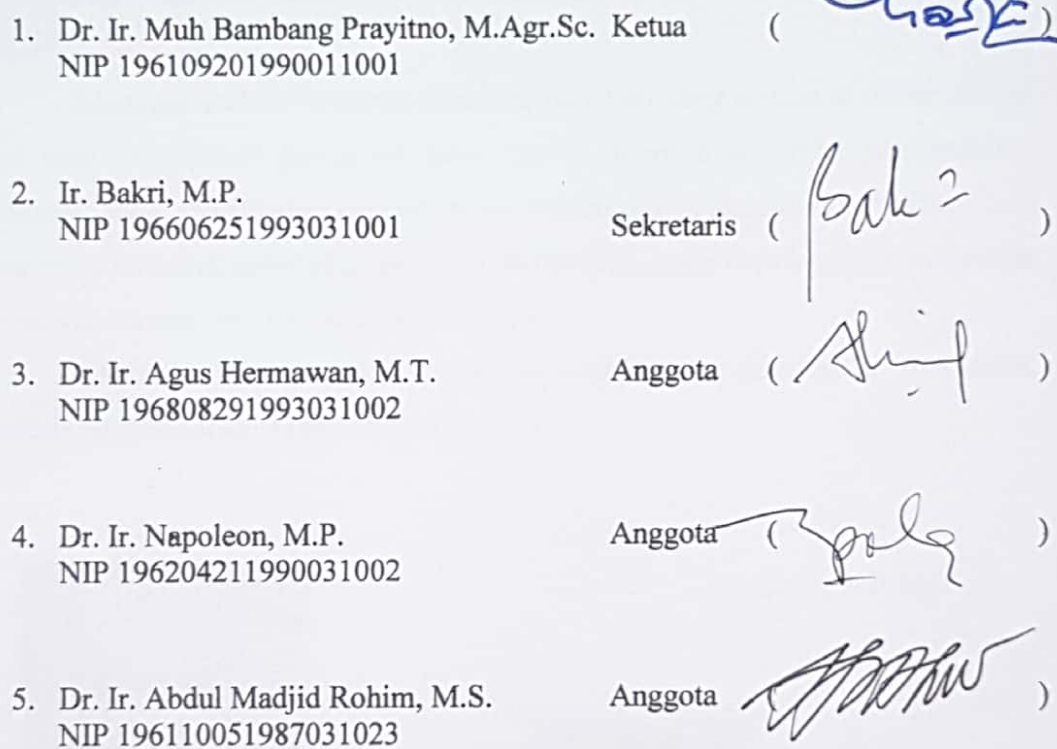 1. Dr. Ir. Muh Bambang Prayitno, M.Agr.Sc. Ketua ( )
NIP 196109201990011001
2. Ir. Bakri, M.P.
NIP 196606251993031001 Sekretaris ( )
3. Dr. Ir. Agus Hermawan, M.T. Anggota ( )
NIP 196808291993031002
4. Dr. Ir. Napoleon, M.P. Anggota ( )
NIP 196204211990031002
5. Dr. Ir. Abdul Madjid Rohim, M.S. Anggota ( )
NIP 196110051987031023